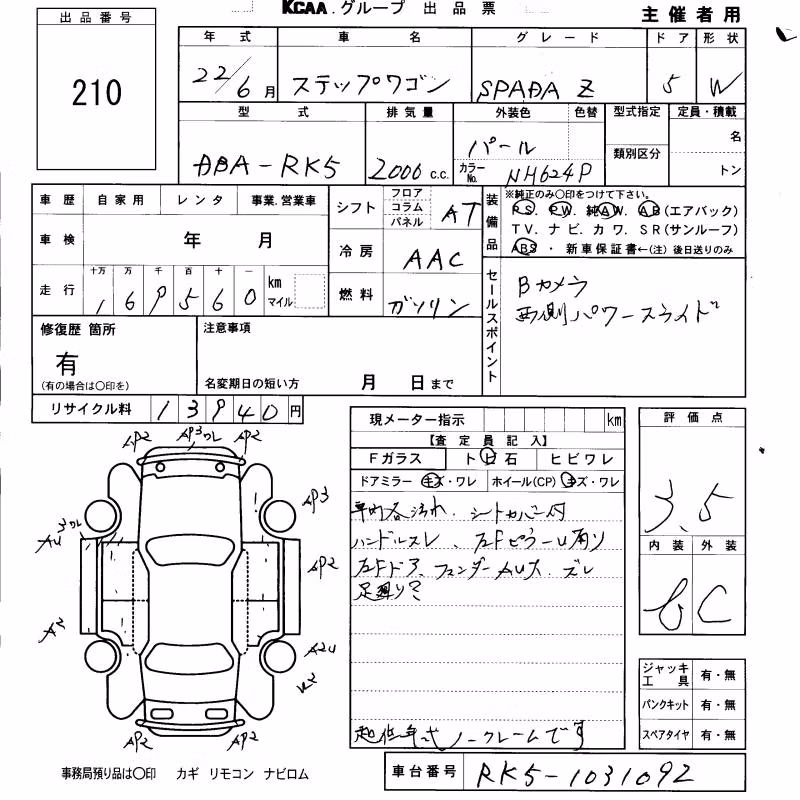 KCAA.グループ 出品票
主催者用
出品番号
210
年式 車名 グレード ドア 形状
22/6月 ステップワゴン SPADA Z 5 W
型式 排気量 外装色 色替 型式指定 定員・積載
DBA-RK5 2000 c.c. パール 類別区分 名
カラーNo. NH624P トン
車歴 自家用 レンタ 事業.営業車
車検 年 月
走行 十万 万 千 百 十 一 km マイル
1 6 9 5 6 0
シフト フロア コラム パネル AT
冷房 AAC
燃料 ガソリン
装備品
※純正のみ○印をつけて下さい。
PS. PW. 純AW. AB(エアバック)
TV. ナビ. カワ. SR(サンルーフ)
ABS ・ 新車保証書←(注) 後日送りのみ
セールスポイント
Bカメラ
両側パワースライド
修復歴 箇所
有
(有の場合は○印を)
注意事項
名変期日の短い方 月 日まで
リサイクル料 1 3 9 4 0 円
現メーター指示 km
【査定員記入】
Fガラス ト ヒ 石 ヒビワレ
ドアミラー キズ・ワレ ホイール(CP) キズ・ワレ
車内各汚れ、シートカバー付
ハンドルスレ、左Fピラーu有り
左Fドア、フェンダーAu大、ズレ
足廻り?
超低年式ノークレームです
評価点
3.5
内装 外装
C
ジャッキ工具 有・無
パンクキット 有・無
スペアタイヤ 有・無
AP2 AP3ワレ AP2
AP3
3ワレ
AU
AP2
A2
A2U
AP2 AP2
事務局預り品は○印 カギ リモコン ナビロム
車台番号 RK5-1031092